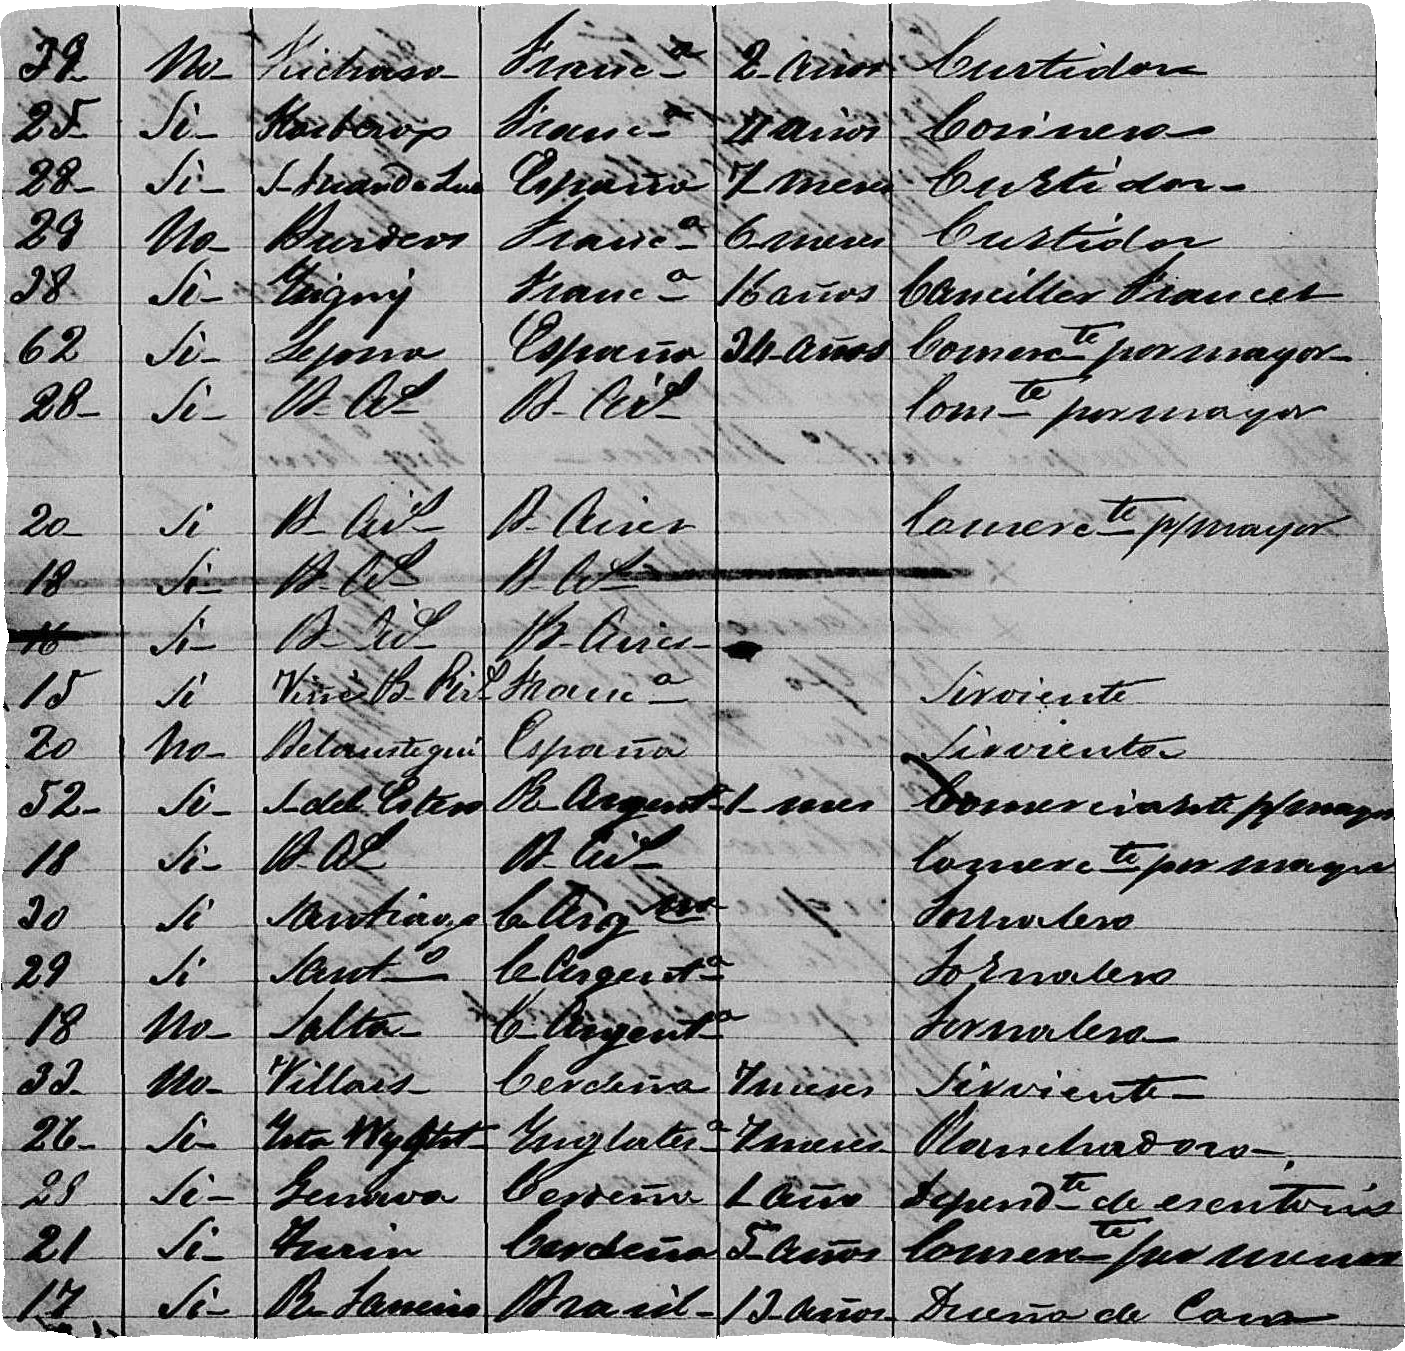 39 No Franc.a 2 años Curtidor
25 Si Franc.a 4 años Cocinero
28 Si S. Juan de Luz España 7 meses Curtidor
29 No Burdeos Franc.a 6 meses Curtidor
38 Si Franc.a 16 años Canciller Frances
62 Si España 34 años Comerc.te por mayor
28 Si B. Ais B. Ais Com.te por mayor
20 Si B. Ais B. Aires Comerc.te p/mayor
18 Si B. As B. As
16 Si B. Ais B. Aires
15 Si Franc.a Sirviente
20 No Belaustegui España Sirvienta
52 Si S. del Estero R. Argent.a 1 mes Comerciante p/mayor
18 Si B. As B. Ais Comerc.te por mayor
30 Si Santiago C. Arg Jornalero
29 Si Sant.o C. Argent.a Jornalero
18 No Salta C. Argent.a Jornalero
33 No Villars Cerdeña 7 meses Sirviente
26 Si Inglater.a 7 meses Planchadora
28 Si Genova Cerdeña 1 año Depend.te de escritorio
21 Si Turin Cerdeña 5 años Comerc.te por menor
17 Si R. Janeiro Brasil 13 años Dueña de Casa